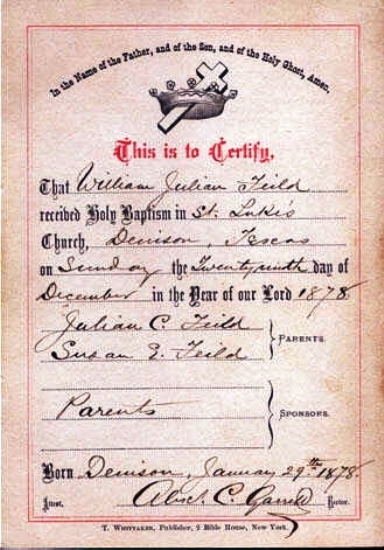 In the Name of the Father, and of the Son, and of the Holy Ghost, Amen.
This is to Certify,
That William Julian Feild
received Holy Baptism in St. Luke's
Church, Denison, Texas
on Sunday the Twenty ninth day of
December in the Year of our Lord 1878
Julian C. Feild
Susan E. Feild
PARENTS.
Parents
SPONSORS.
Born Denison, January 29th 1878.
Attest, C. Rector.
T. WHITTAKER, Publisher, 2 Bible House, New York.